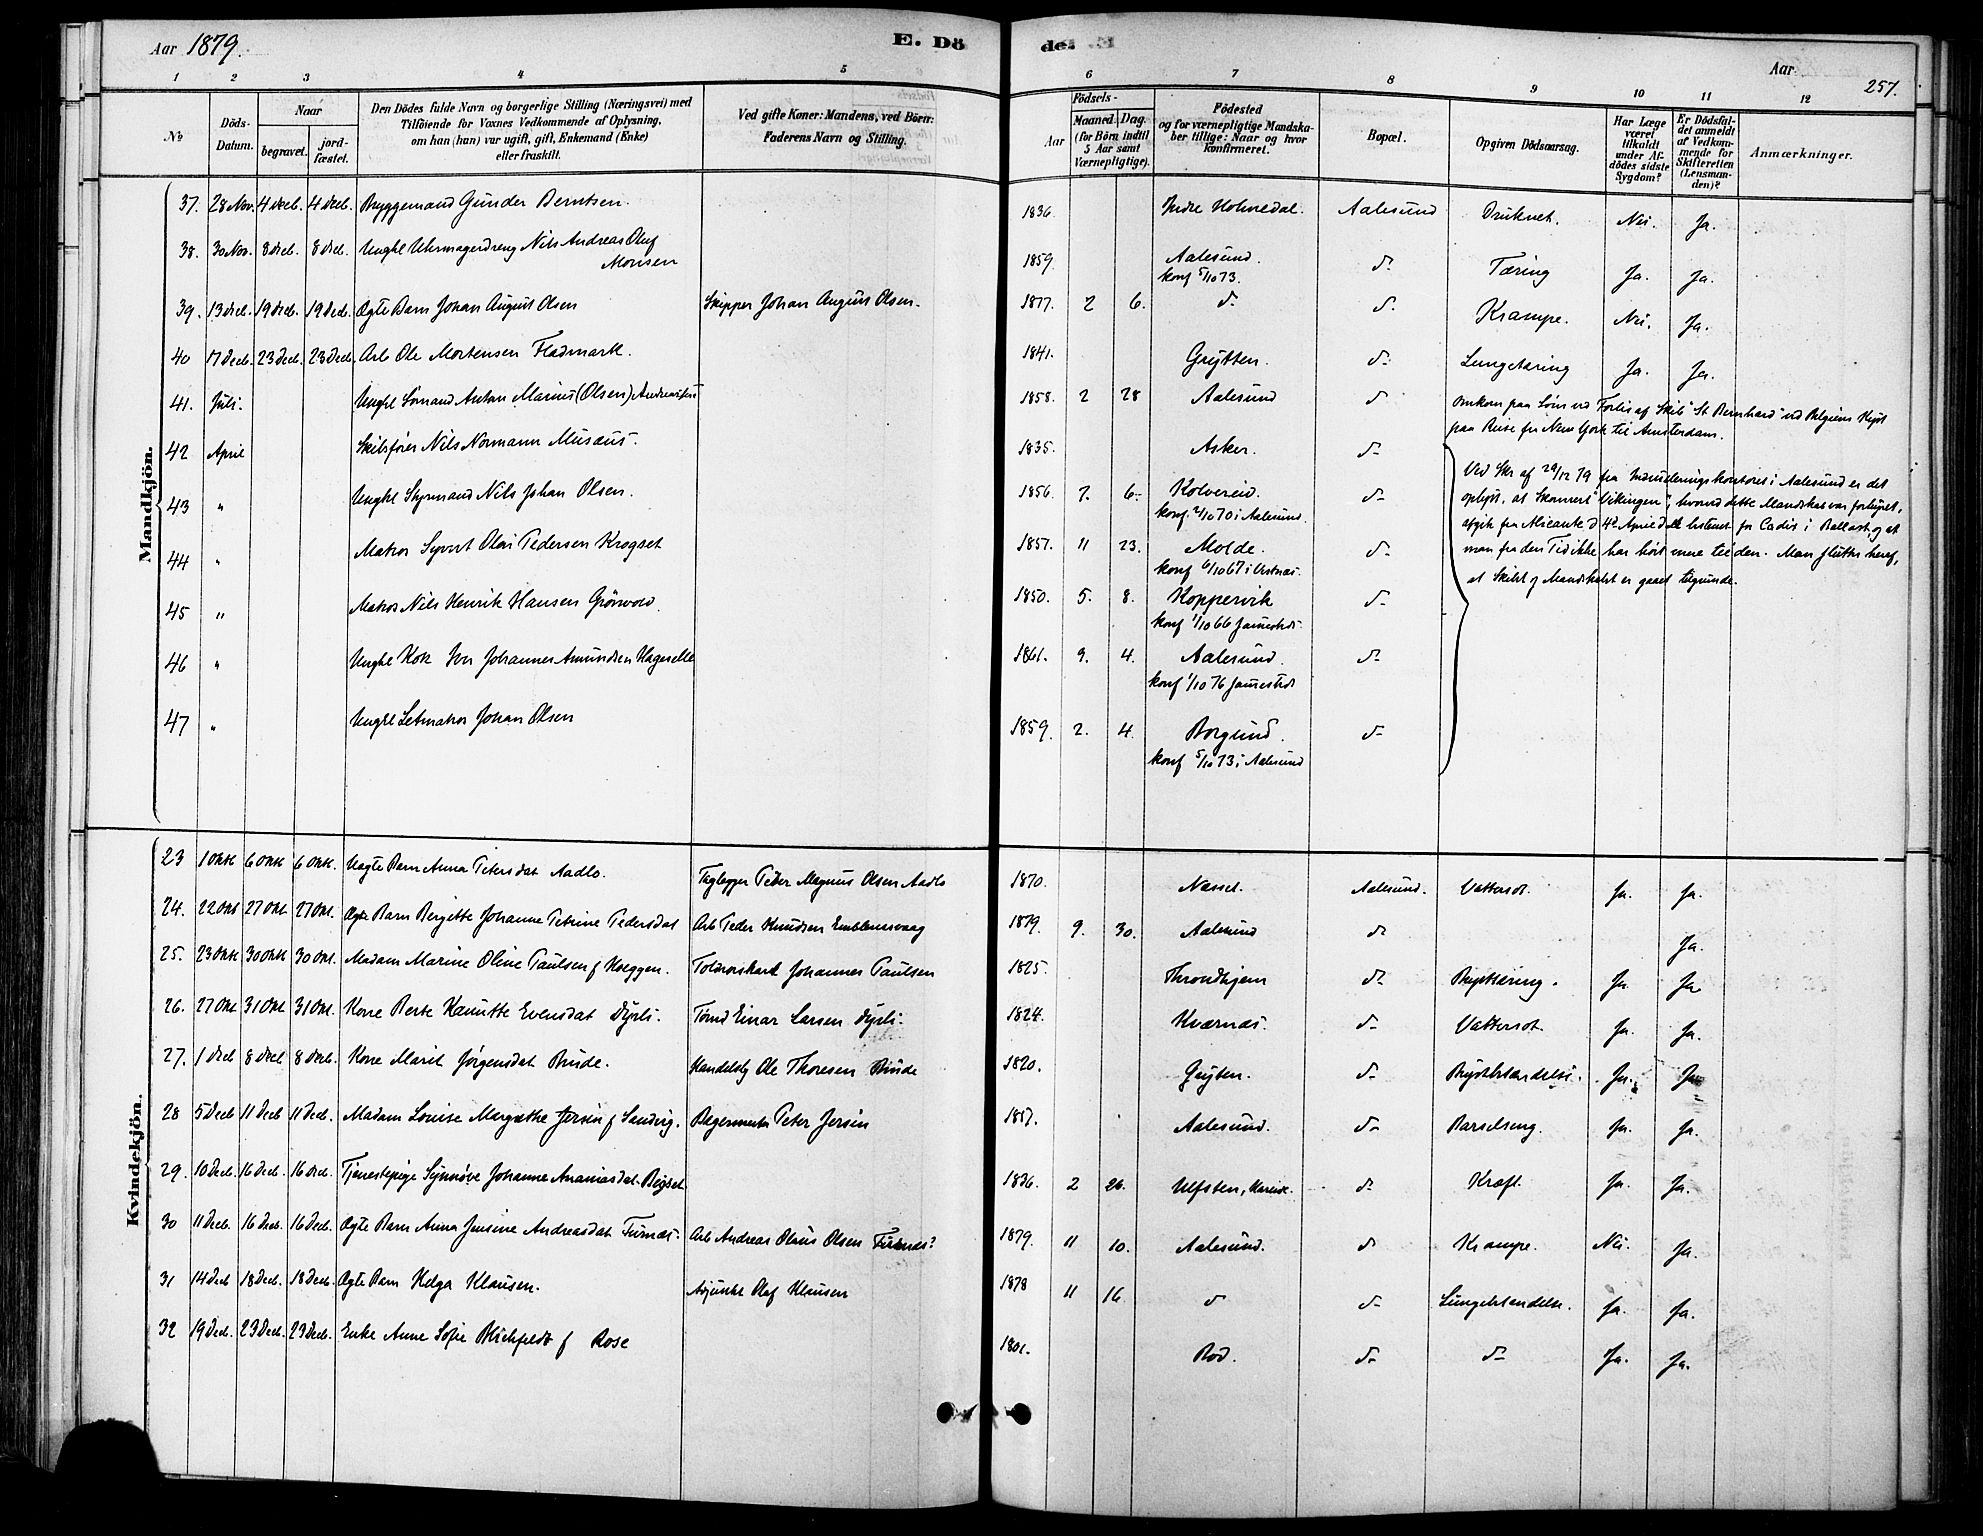 Aar 1879.
E. Dö
de:
Aar
257.
1 2 3 4 5 6 7 8 9 10 11 12
No
Döds-Datum.
Naar
begravet.
jordfæstet.
Den Dödes fulde Navn og borgerlige Stilling (Næringsvei) med
Tilföiende for Voxnes Vedkommende af Oplysning,
om han (hun) var ugift, gift, Enkemand (Enke)
eller fraskilt.
Ved gifte Koner: Mandens, ved Börn:
Faderens Navn og Stilling.
Födsels-
Aar
Maaned. Dag.
(for Börn indtil
5 Aar samt
Værnepligtige).
Födested
og for værnepligtige Mandska-
ber tillige: Naar og hvor
konfirmeret.
Bopæl.
Opgiven Dödsaarsag.
Har Læge
været
tilkaldt
under Af-
dödes sidste
Sygdom?
Er Dödsfal-
det anmeldt
af Vedkom-
mende for
Skifteretten
(Lensman-
den)?
Anmærkninger.
Mandkjön.
37. 28 Nov. 4 Decb. 4 Decb. Bryggemand Gunder Berntsen. 1836. Indre Holmedal. Aalesund Druknet. Nei. Ja.
38. 30 Nov. 8 Decb. 8 Decb. Ungkl Uhrmagerdreng Nils Andreas Oluf
Monsen 1859. Aalesund. do Tæring Ja. Ja.
konf 5/10 73.
39. 13 Decb. 19 Decb. 19 Decb. Ægte Barn Johan August Olsen Skipper Johan August Olsen. 1877. 2 6. do do Krampe. Nei. Ja.
40 17 Decb. 23 Decb. 23 Decb Arb Ole Mortensen Fladmark. 1841. Grytten. do Lungetæring Ja. Ja.
41. Juli. Ungkl Sømand Anton Marius (Olsen) Andreassen 1858. 2 28 Aalesund do Omkom paa Søen ved Forlis af Skib "St Bernhard" ved Belgiens Kyst
paa Reise fra New York til Amsterdam.
42 April Skibsfører Nils Normann Musæus. 1835. Asker. do
43 " Ungkl Styrmand Nils Johan Olsen. 1856. 7. 6. Kolvereid. do
konf. 2/10 70 i Aalesund.
44 " Matros Syvert Olai Pedersen Krogset 1851. 11 23. Molde. do
konf 6/10 67 i Vestnæs.
45 " Matros Nils Henrik Hansen Grönvold. 1850. 5. 8. Koppervik do
konf 1/10 66
46 " Ungkl Kok Iver Johannes Amundsen Hagerelle 1861. 9. 4. Aalesund. do
konf 1/10 76
47 " Ungkl Letmatros Johan Olsen 1859. 2. 4. Borgund. do
konf 5/10 73 i Aalesund
Ved Skr af 29/12 79 fra Mønstringskontoret i Aalesund er det
oplyst, at Skonnert "Vikingen", hvorved dette Mandskab var forhyret,
afgik fra Alicante d 4de April bestemt for Cadix i Ballast, og at
man fra den Tid ikke har hört mere til den. Man slutter heraf,
at Skibet og Mandskabet er gaaet tilgrunde.
Kvindekjön.
23 1 Okt 6 Okt 6 Okt. Uægte Barn Anna Petersdat Aadlo. Taglegger Peder Magnus Olsen Aadlo 1870. Nesset. Aalesund. Vattersot. Ja. Ja.
24. 22 Okt 27 Okt 27 Okt. Ægte Barn Bergitte Johanne Petrine Pedersdat Arb Peder Knudsen Emblemsvaag 1879. 9. 30. Aalesund do Ja.
25. 23 Okt 30 Okt 30 Okt. Madam Marine Oline Paulsen f Hoeggen. Toldropskarl Johannes Paulsen 1825. Throndhjem do Brysttæring. Ja Ja
26. 27 Okt 31 Okt 31 Okt Kone Berte Kanutte Evensdat Dyrli. Tømd Einar Larsen Dyrli. 1824. Kværnæs. do Vattersot. Ja. Ja.
27. 1 Decb 8 Decb 8 Decb. Kone Marit Jørgensdat Brude. Handelsbg Ole Thoresen Brude 1820. Grytten. do Brystbetændelse. Ja. Ja
28 5 Decb 11 Decb 11 Decb. Madam Lovise Margrethe Jersin f Sandvig. Bagermester Peter Jersin 1857. Aalesund. do Barselseng. Ja. Ja.
29. 10 Decb. 16 Decb. 16 Decb. Tjenestepige Synnöve Johanne Ananiasdat Bigset 1836. 2 26. Ulfsten, Hareid. do Kræft. Ja. Ja.
30 11 Decb. 16 Decb. 16 Decb. Ægte Barn Anna Jensine Andreasdat Furnæs. Arb Andreas Olaus Olsen Furnæs? 1879. 11 10. Aalesund. do Krampe. Nei. Ja.
31 14 Decb 18 Decb. 18 Decb. Ægte Barn Helga Klausen. Adjunkt Olaf Klausen 1878 11 16. do do Lungebetændelse. Ja. Ja.
32 19 Decb. 23 Decb. 23 Decb. Enke Anne Sofie Blichfeldt f Rose 1801. Bod. do do Ja. Ja.